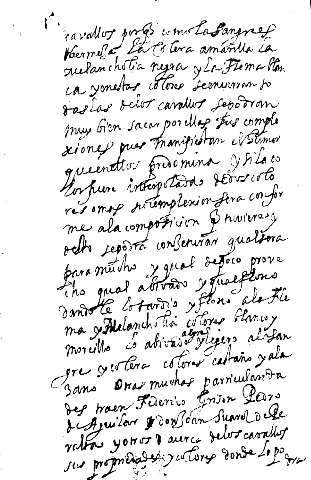 cavallos porq̃ como la sangre es
vermeja la colera amarilla la
melancholia negra y la flema blan
ca y en estas colores se encierran to
das las de los cavallos se podran
muy bien sacar por ellas sus comple
xiones pues manifiestan el humor
que en ellos predomina y si la co
lor fuere interpolada de dos colo
res o mas su complexion sera confor
me a la composicion q̃ tuviere y
desto se podra conjeturar qual sera
para mucho y qual de poco prove
cho qual abivado y qual flono
dando le lo tardio y flono a la fle
ma y melancholia colores blanco y
morcillo lo abivado alegre y ligero al san
gre y colera colores castaño y ala
zano otras muchas particularida
des traen Federico Grison Pedro
de Aguilar y don Joan Suarez de Pe
ralta y otros acerca de los cavallos
sus propriedades y colores donde lo po
dra